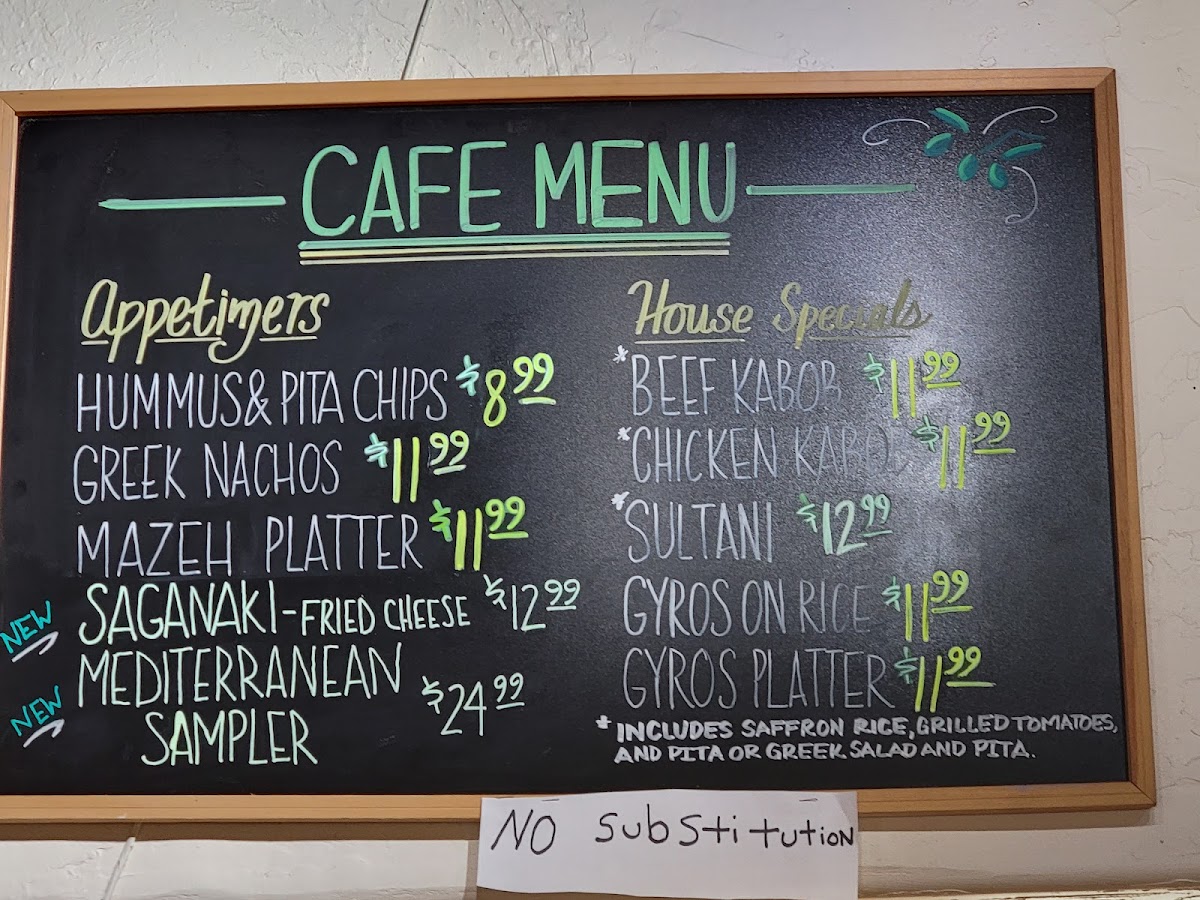 CAFE MENU
Appetizers
HUMMUS & PITA CHIPS $8.99
GREEK NACHOS $11.99
MAZEH PLATTER $11.99
NEW SAGANAKI - FRIED CHEESE $12.99
NEW MEDITERRANEAN
SAMPLER $24.99
House Specials
* BEEF KABOB $11.99
* CHICKEN KABOB $11.99
* SULTANI $12.99
GYROS ON RICE $11.99
GYROS PLATTER $11.99
* INCLUDES SAFFRON RICE, GRILLED TOMATOES,
AND PITA OR GREEK SALAD AND PITA.
NO Substitution